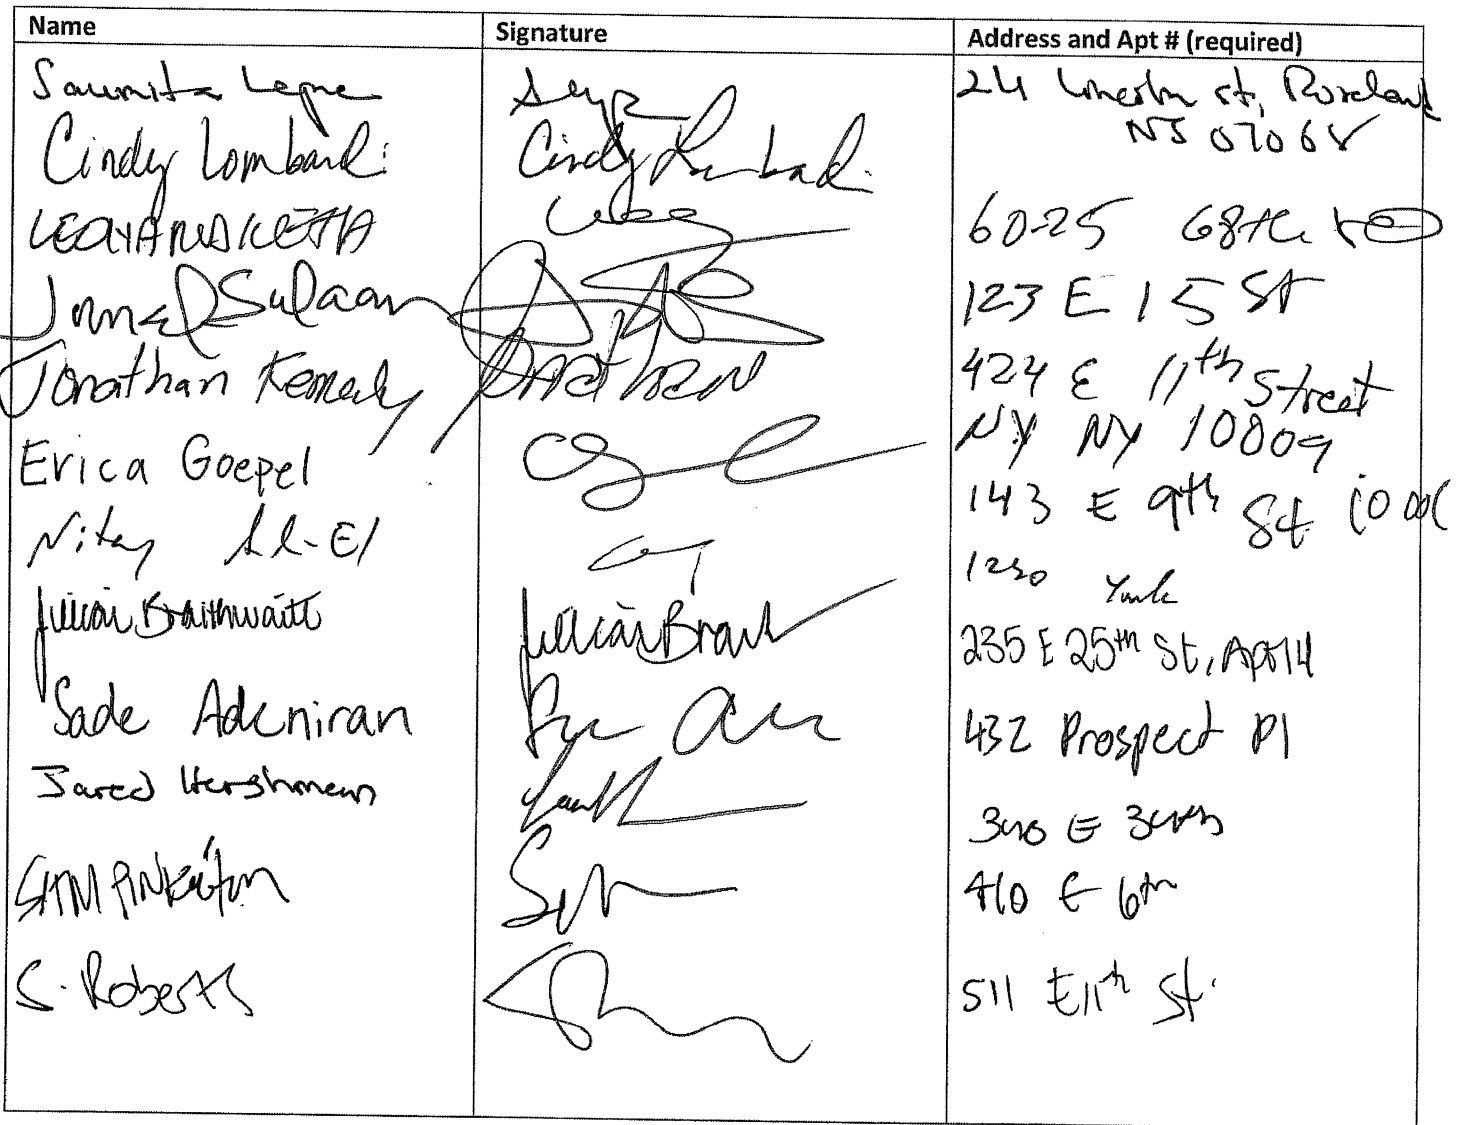 Name Signature Address and Apt # (required)
Saumita 24 Lincoln st, Roseland
NJ 07068
Cindy Lombardi Cindy Lombardi
60-25 68th
Sulaam 123 E 15 St
Jonathan Kennedy Jonathan 424 E 11th Street
NY NY 10009
Erica Goepel 143 E 9th St
Nitay 1230 York
Jillian Braithwaite Jillian Brait 235 E 25th St, Apt 14
Sade Adeniran 432 Prospect Pl
Jared Hershmann 340 E 34th
SAM PINKERTON 410 E 6th
S. Roberts 511 E 11th St.